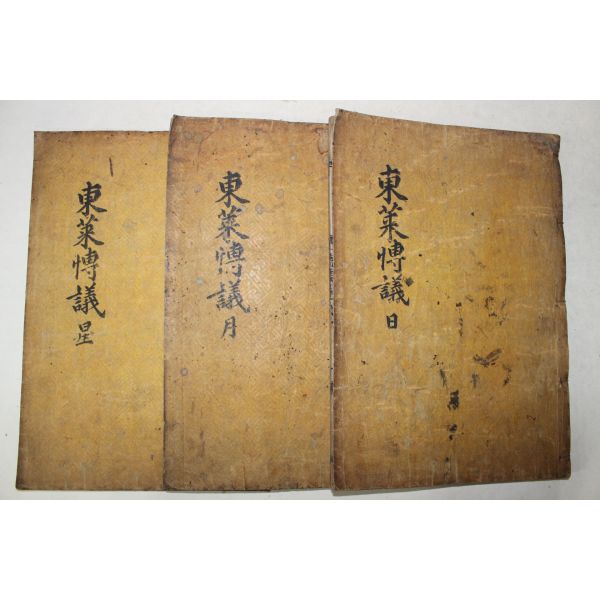 東萊愽議日
東萊愽議月
東萊愽議星